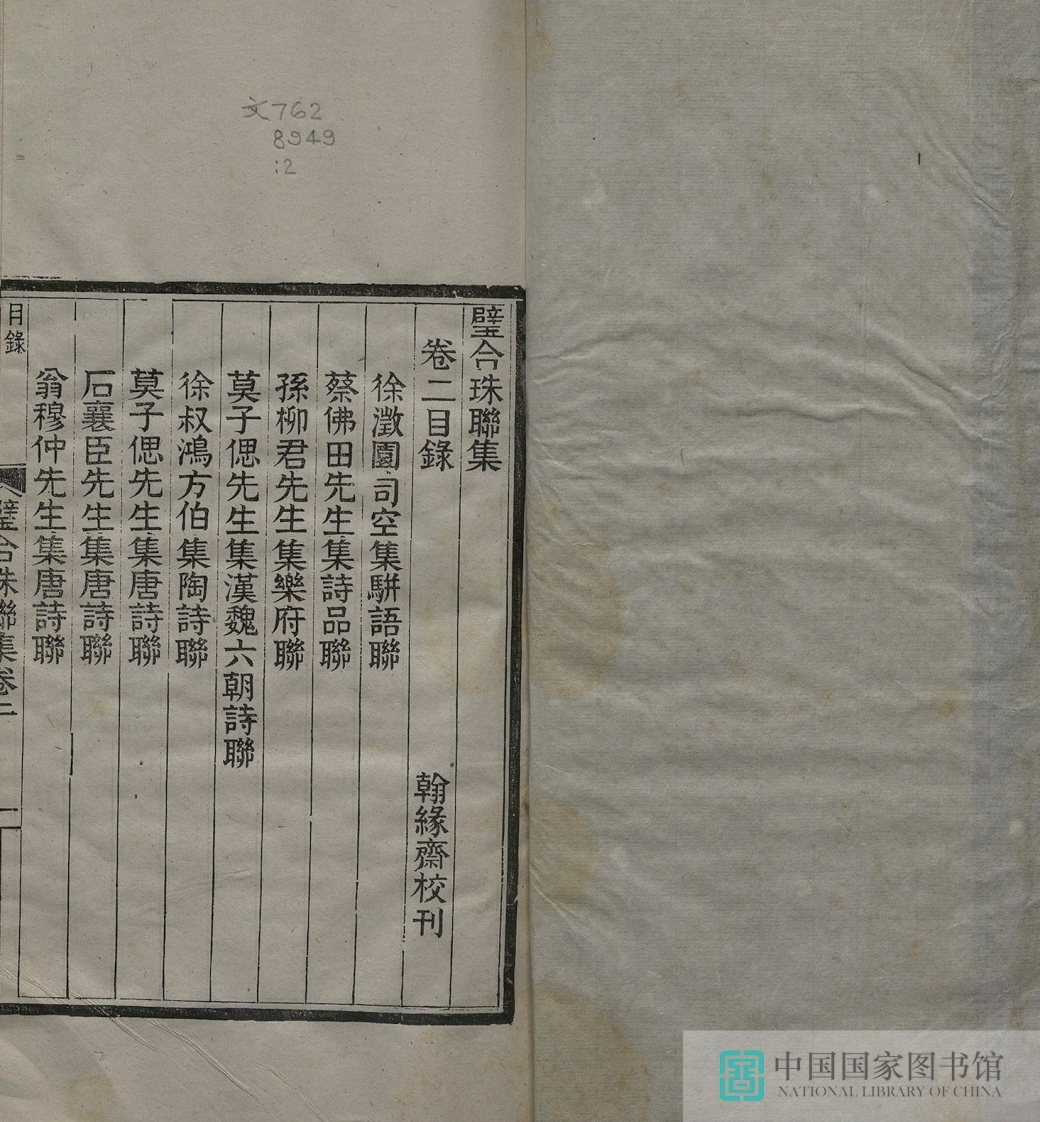 文762
8949
:2
璧合珠聯集
卷二目錄
翰緣齋校刊
徐澂園司空集駢語聯
蔡佛田先生集詩品聯
孫柳君先生集樂府聯
莫子偲先生集漢魏六朝詩聯
徐叔鴻方伯集陶詩聯
莫子偲先生集唐詩聯
石襄臣先生集唐詩聯
翁穆仲先生集唐詩聯
目錄
璧合珠聯集卷二
一
中国国家图书馆
NATIONAL LIBRARY OF CHINA